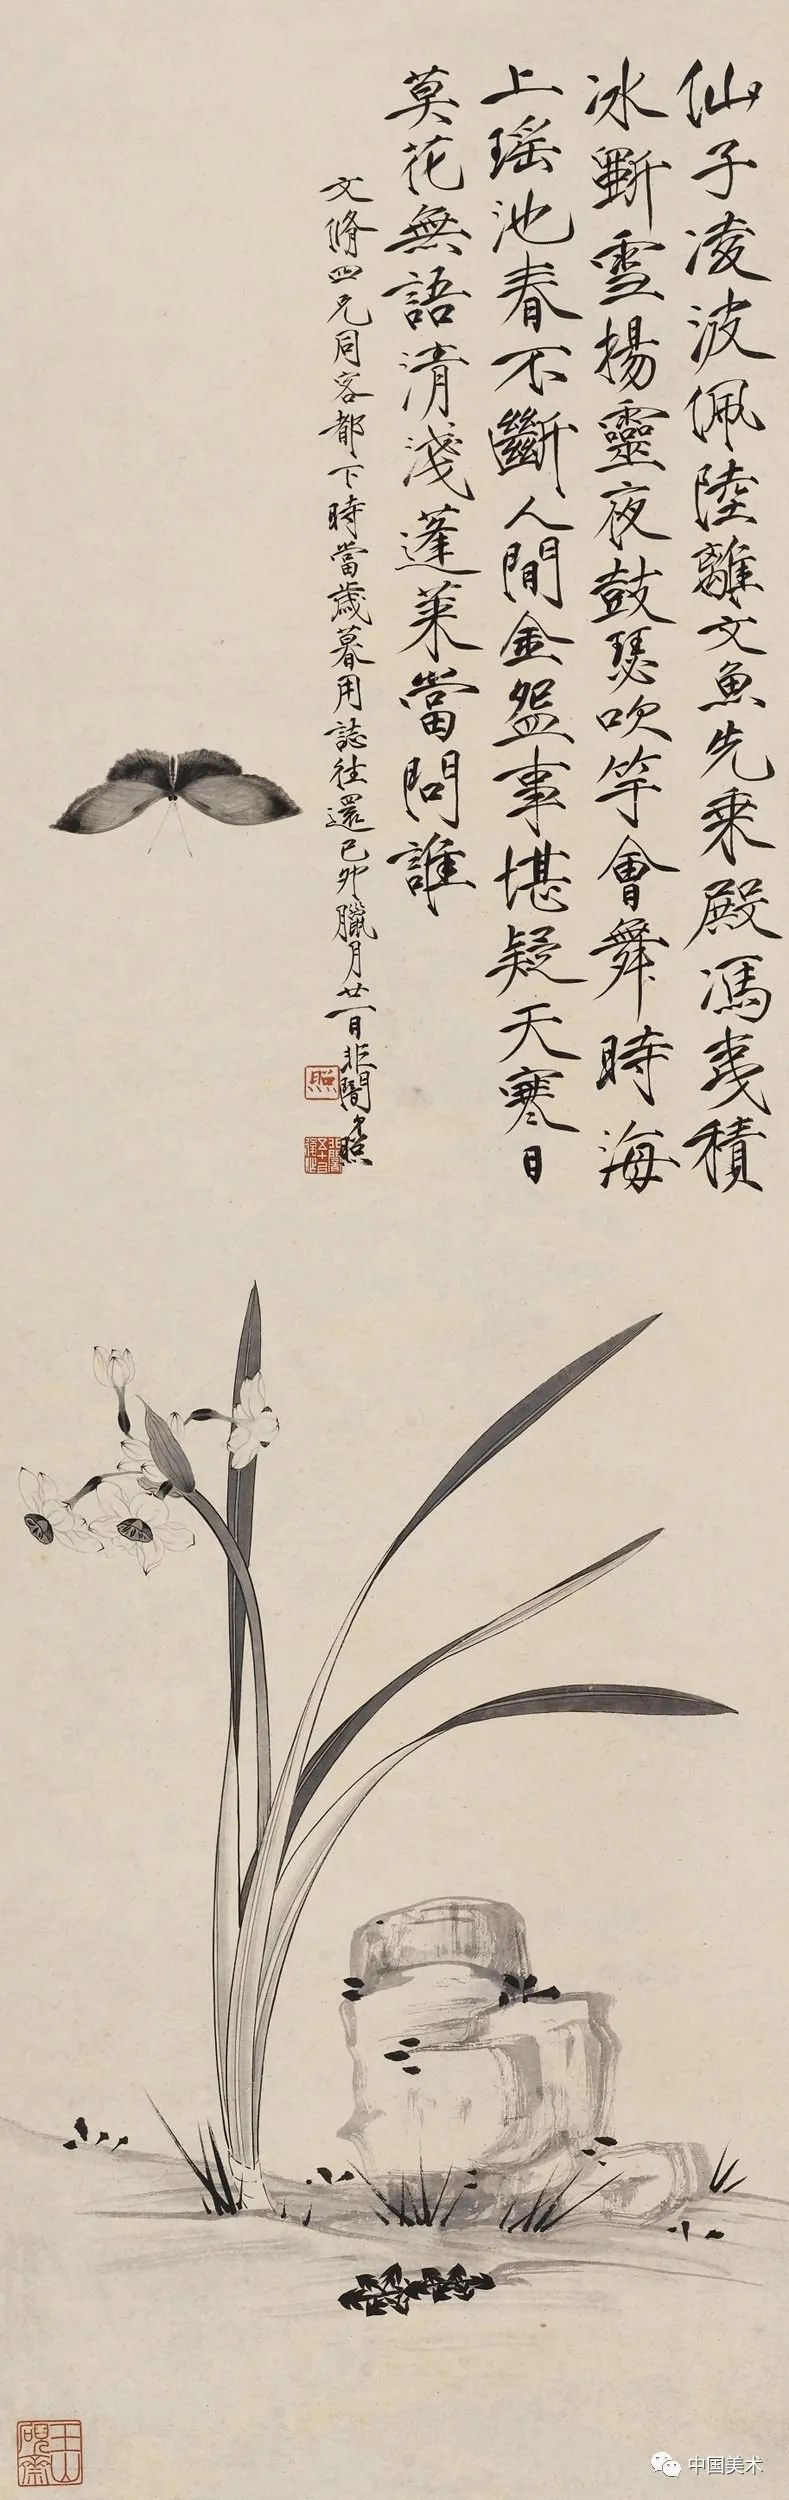 仙子凌波佩陸離文魚先乘殿馮夷積
冰斲雪揚靈夜鼓瑟吹竽會舞時海
上瑤池春不斷人間金盌事堪疑天寒日
莫花無語清淺蓬萊當問誰
文脩四兄同客都下時當歲暮用誌往還己卯臘月廿一日非闇于照
照
玉山硯齋
中国美术